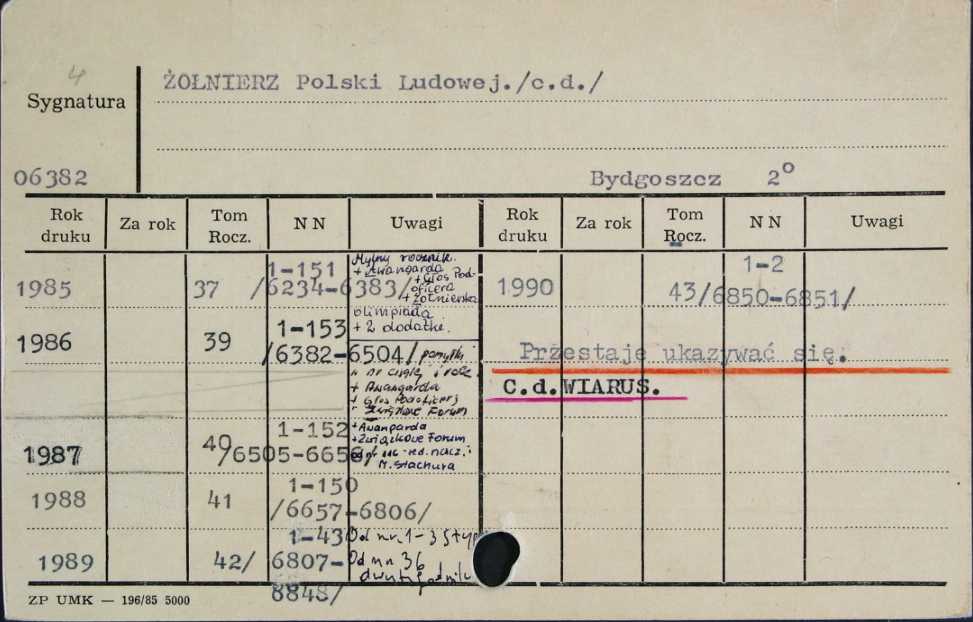 4
ŻOŁNIERZ Polski Ludowej./c.d./
Sygnatura
06382
Bydgoszcz 2°
Rok druku Za rok Tom Rocz. N N Uwagi Rok druku Za rok Tom Rocz. N N Uwagi
1985 37 1-151 /6234-6383/
Mylny rocznik.
+ Awangarda
+ Głos Pod-
oficera
+ Żołnierska
olimpiada
+ 2 dodatki.
1986 39 1-153 /6382-6504/
pomyłki
w nr ciągł. i rocz.
+ Awangarda
+ Głos Podoficera
Związkowe Forum
1987 40 1-152 /6505-6656/
+ Awanparda
+ Związkowe Forum
red. nacz.:
M. Stachura
1988 41 1-150 /6657-6806/
1989 42/ 1-43 6807-8848/
Od nr. 1-3
Od nr 36
1990 43 1-2 /6850-6851/
Przestaje ukazywać się.
C.d.WIARUS.
ZP UMK — 196/85 5000